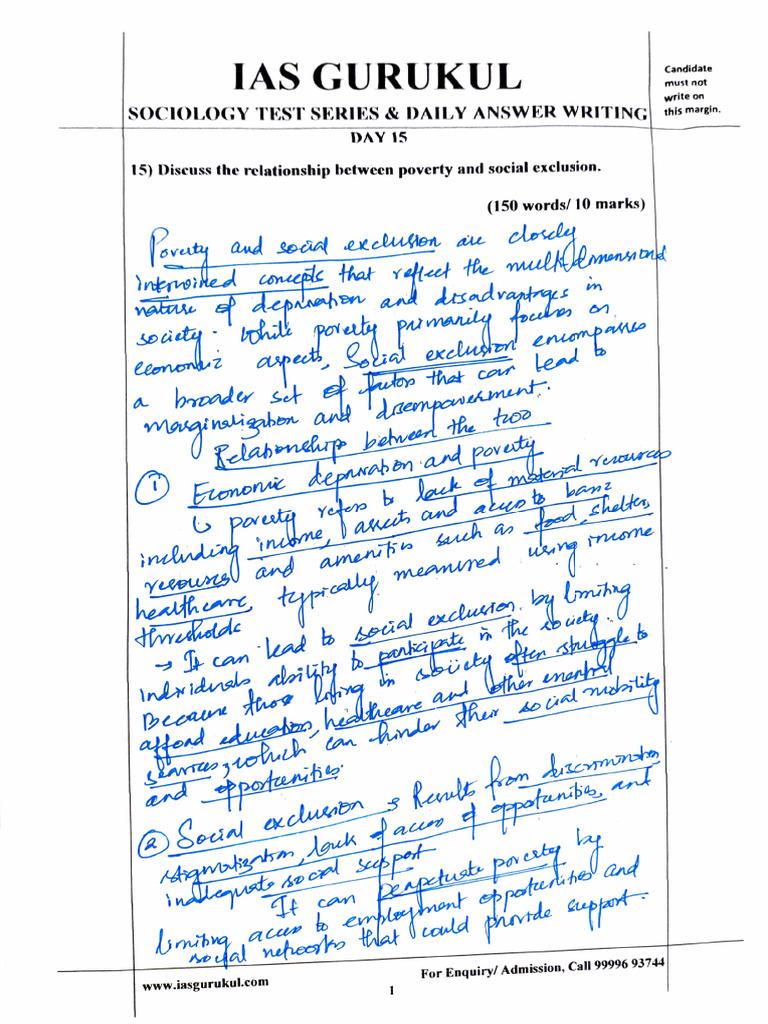 IAS GURUKUL
Candidate
must not
write on
this margin.
SOCIOLOGY TEST SERIES & DAILY ANSWER WRITING
DAY 15
15) Discuss the relationship between poverty and social exclusion.
(150 words/ 10 marks)
Poverty and social exclusion are closely
interwined concepts that reflect the multidimensional
nature of deprivation and disadvantages in
society. While poverty primarily focuses on
economic aspects, Social exclusion encompasses
a broader set of factors that can lead to
marginalization and disempowerment.
Relationship between the two
① Economic deprivation and poverty
↳ poverty refers to lack of material resources
including income, assets and access to basic
resources and amenities such as food, shelter,
healthcare, typically measured using income
thresholds
→ It can lead to social exclusion by limiting
individuals ability to participate in the society.
Because those living in society often struggle to
afford education, healthcare and other essential
services, which can hinder their social mobility
and opportunities.
② Social exclusion → Results from discrimination
stigmatization, lack of access of opportunities, and
inadequate social support
It can perpetuate poverty by
limiting access to employment opportunities and
social networks that could provide support.
www.iasgurukul.com
For Enquiry/ Admission, Call 99996 93744
1